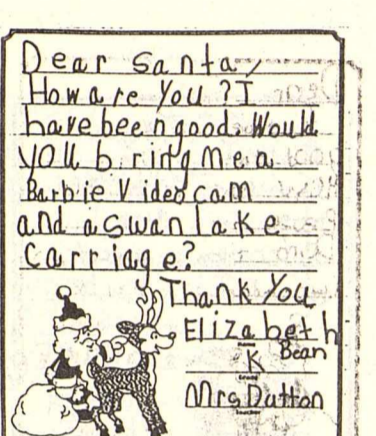 Dear Santa,
How are you? I
have been good. Would
you bring me a
Barbie Video cam
and a swan lake
carriage?
Thank you
Elizabeth
Bean
K
Mrs Dutton